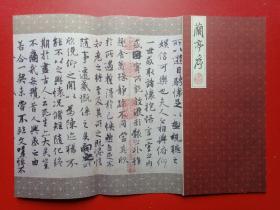 蘭亭序
所以遊目騁懷足以極視聽之
娛信可樂也夫人之相與俯仰
一世或取諸懷抱悟言一室之內
或因寄所託放浪形骸之外雖
趣舍萬殊靜躁不同當其欣
於所遇蹔得於己快然自足不
知老之將至及其所之既惓情
隨事遷感慨係之矣向之所
欣俛仰之閒以為陳迹猶不
能不以之興懷況脩短隨化終
期於盡古人云死生亦大矣豈
不痛哉每攬昔人興感之由
若合一契未嘗不臨文嗟悼不